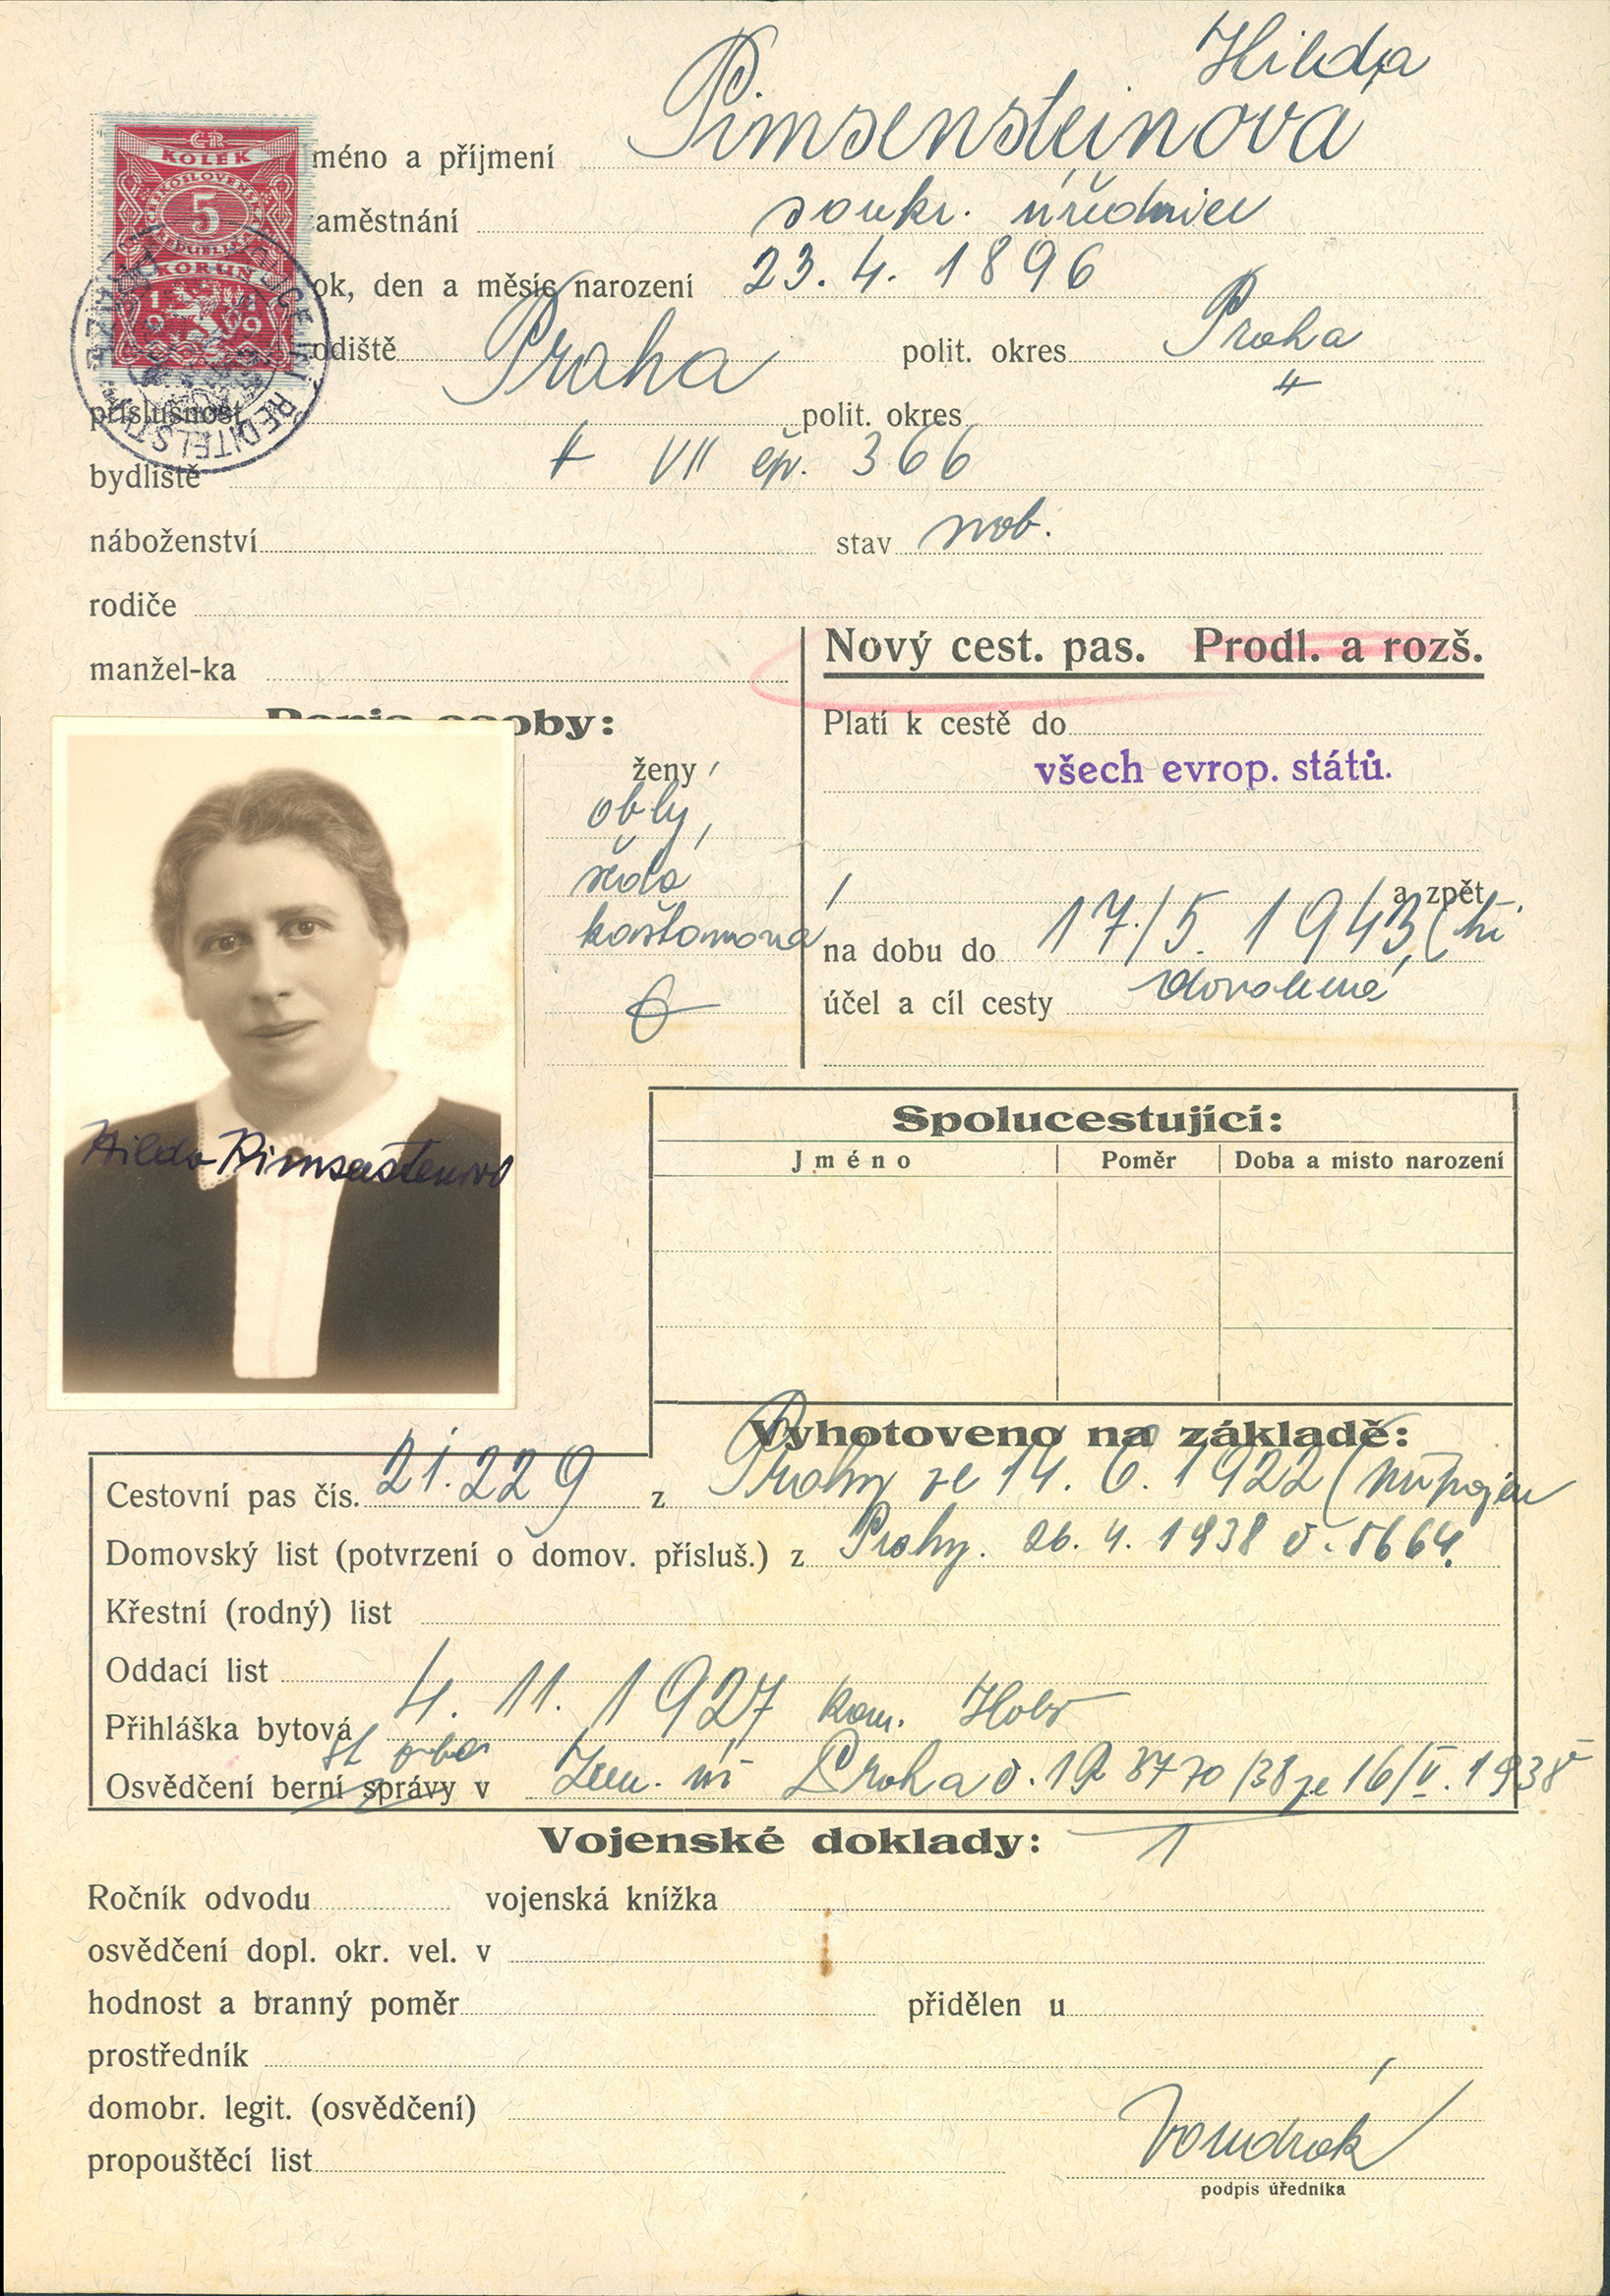 Hilda
méno a příjmení Pimsensteinová
aměstnání soukr. úřednice
ok, den a měsíc narození 23. 4. 1896
odiště Praha polit. okres Praha
příslušnost polit. okres
bydliště VII čp. 366
náboženství stav svob.
rodiče
manžel-ka
KOLEK
5
KORUN
1919
ŘEDITELSTV
Nový cest. pas. Prodl. a rozš.
Popis osoby:
ženy
oblý,
šedá
kaštanová
Platí k cestě do
všech evrop. států.
a zpět
na dobu do 17/5. 1943,
účel a cíl cesty dovolená
Hilda Pimsensteinova
Spolucestující:
Jméno Poměr Doba a místo narození
Vyhotoveno na základě:
Cestovní pas čís. 21.229 z Prahy ze 14. 6. 1922 (
Domovský list (potvrzení o domov. přísluš.) z Prahy. 26. 4. 1938 č. 8664.
Křestní (rodný) list
Oddací list
Přihláška bytová 4. 11. 1927 kom.
Osvědčení berní správy v Praha č. 8770/38 ze 16/V. 1938
Vojenské doklady:
Ročník odvodu vojenská knížka
osvědčení dopl. okr. vel. v
hodnost a branný poměr přidělen u
prostředník
domobr. legit. (osvědčení)
propouštěcí list
podpis úředníka